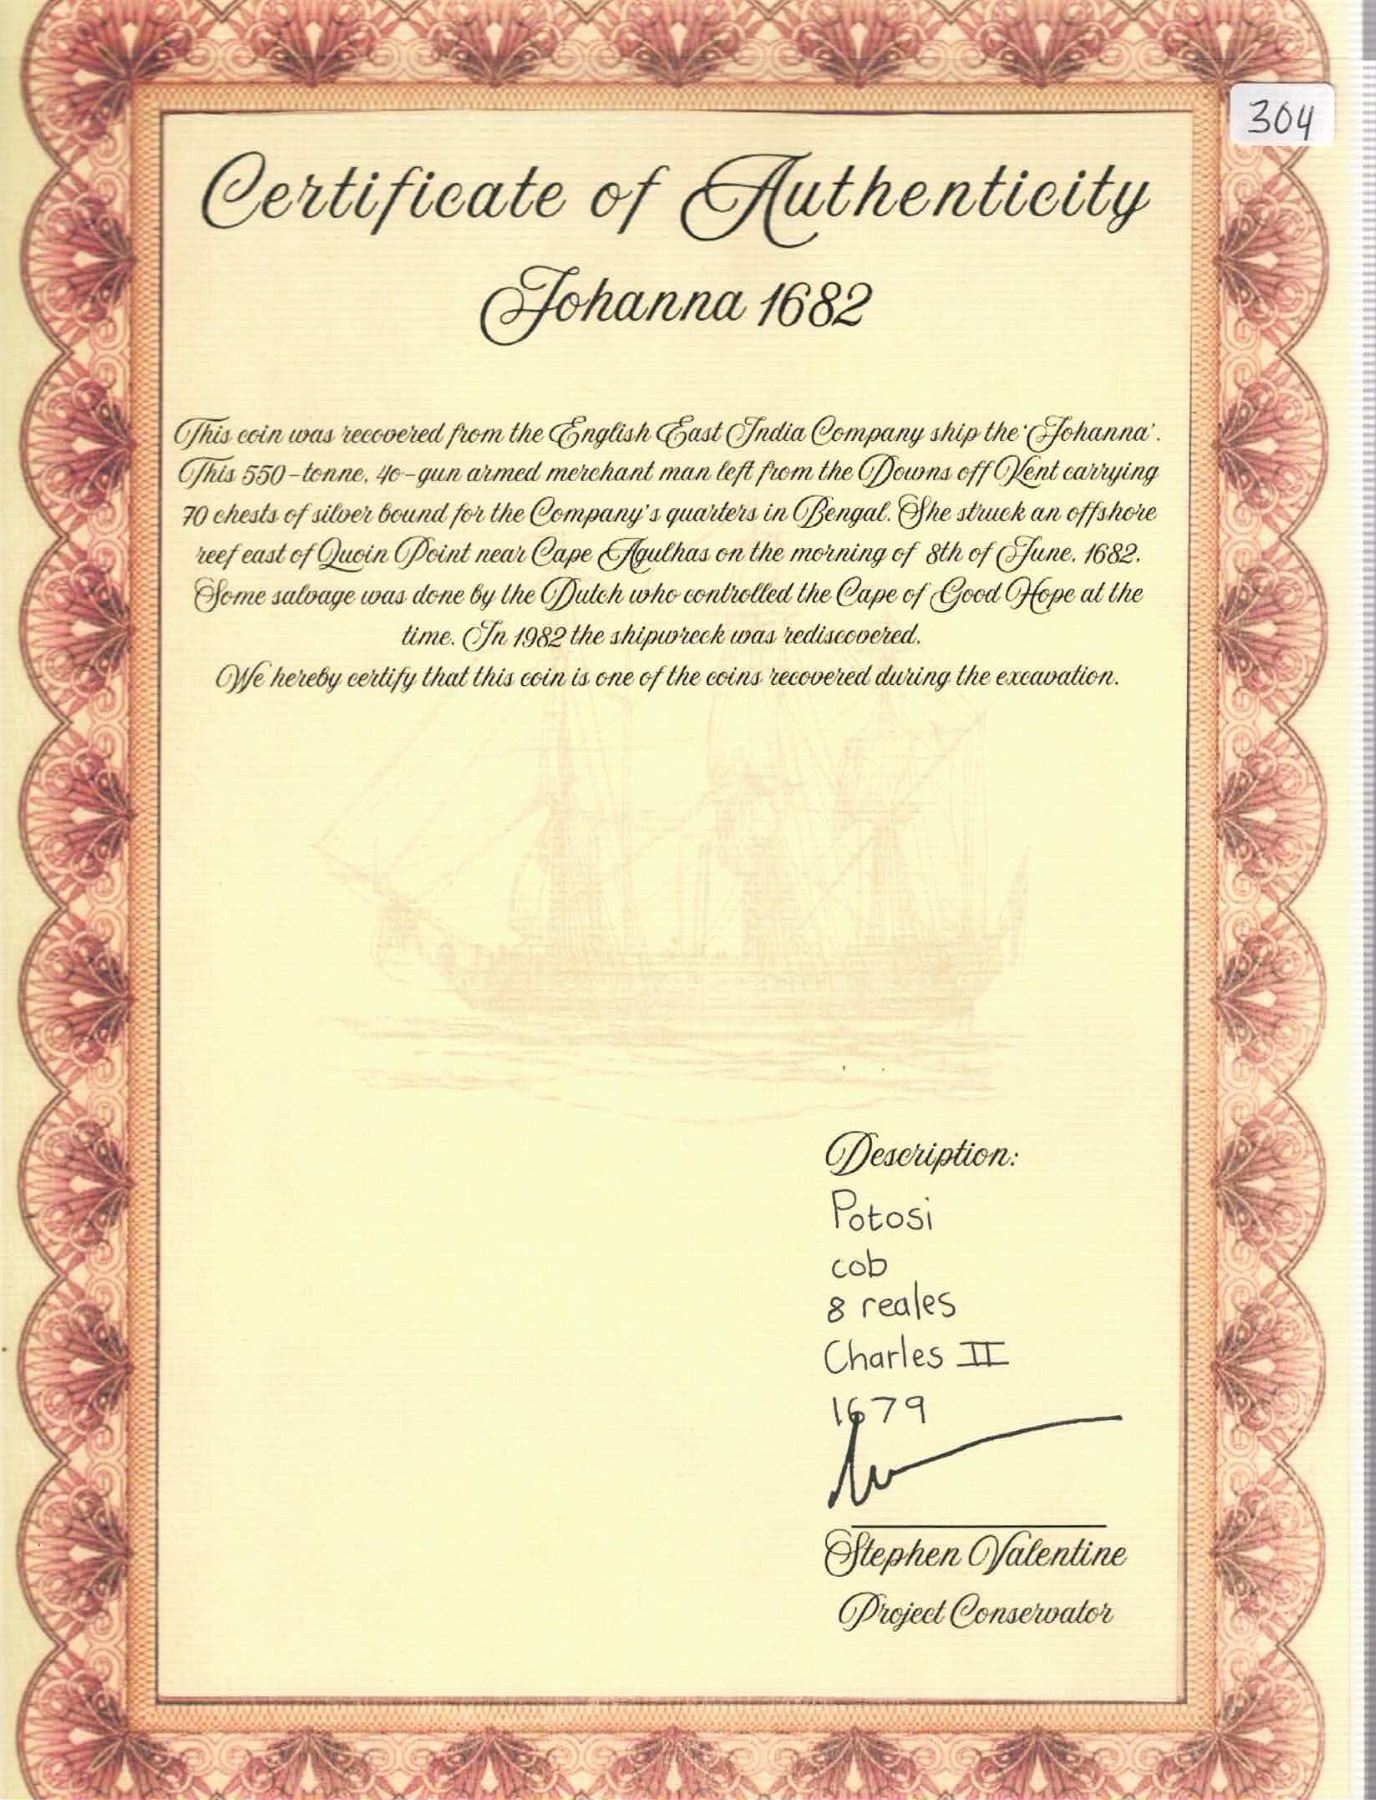 304
Certificate of Authenticity
Johanna 1682
This coin was recovered from the English East India Company ship the 'Johanna'.
This 550-tonne, 40-gun armed merchant man left from the Downs off Kent carrying
70 chests of silver bound for the Company's quarters in Bengal. She struck an offshore
reef east of Quoin Point near Cape Agulhas on the morning of 8th of June, 1682.
Some salvage was done by the Dutch who controlled the Cape of Good Hope at the
time. In 1982 the shipwreck was rediscovered.
We hereby certify that this coin is one of the coins recovered during the excavation.
Description:
Potosi
cob
8 reales
Charles II
1679
Stephen Valentine
Project Conservator